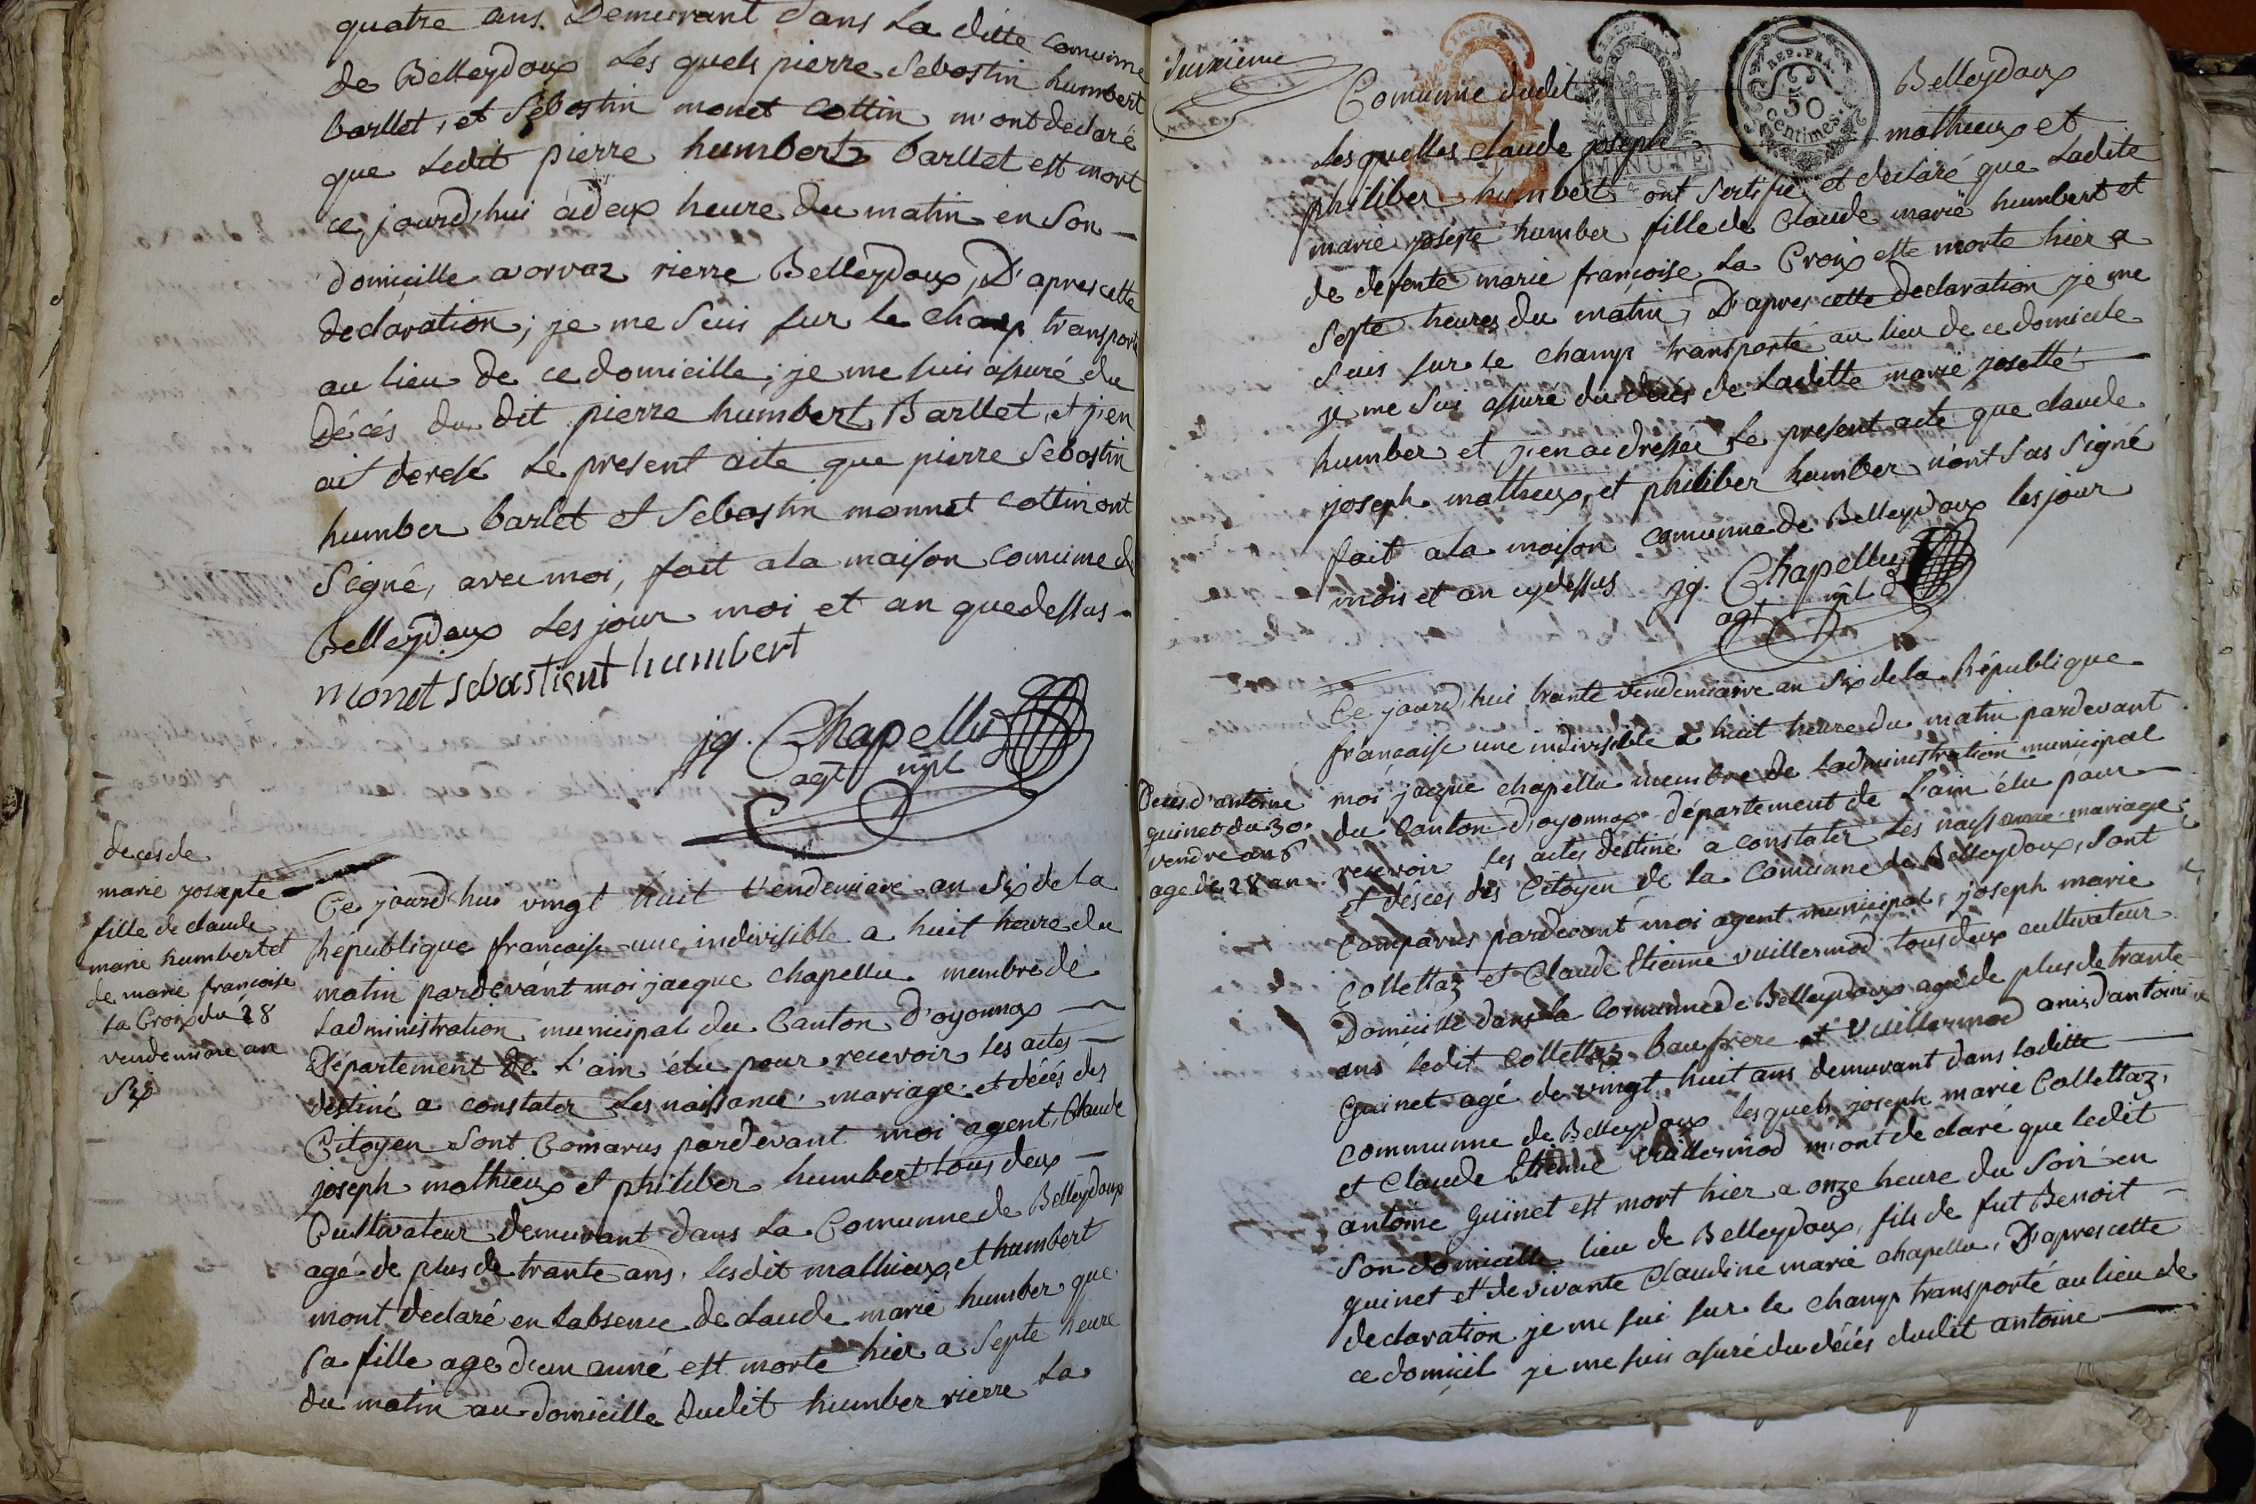 quatre ans. Demeurant dans La ditte comunne
de Belleydoux Les quels pierre Sebostin humbert
barllet, et Sebostin monet Cottin m'ont declaré
que Ledit pierre humbert barllet est mort
ce jourd'hui a deux heure du matin en Son
domicille a orvaz rierre Belleydoux, D'apres cette
declaration; je me Suis sur le champ transporté
au lieu de ce domicille; je me suis assuré du
décés du dit pierre humbert Barllet, et j'en
ait deressé Le present aite que pierre Sebostin
humber barlet et Sebastin monnet cottin ont
Signé, avec moi, fait a la maison comune de
Belleydoux Les jour moi et an quedessus
monet sebastient humbert
jq. Chapellu
agt mpl
deces de
marie josepte
fille de claude
marie humbert et
de marie francoise
La Croix du 28
vendemiare an
Six
Ce jourd'hui vingt huit Vendemiare an Six de la
Republique francaise une indivisible a huit heure du
matin pardevant moi jacque chapellu membre de
Ladministration municipal du Canton D'oyonnax
Département de L'ain élu pour recevoir les actes
destiné a constater Les naissance mariage et décés des
Citoyen Sont Comarus pardevant moi agent, Claude
joseph mathieux et philiber humbert tous deux
Cultivateur demeurant dans La Comunne de Belleydoux
agé de plus de trante ans, lesdit mathieux et humbert
mont declaré en Labsence de claude marie humber que
Sa fille age d'eun anné est morte hier a Septe heure
du matin au domicille dudit humber rierre La
deuxieme
Comunne dudit Belleydoux
Les quelles claude joseph mathieux et
philiber humbert ont Sertifié et declaré que Ladite
marie josepte humber fille de Claude marie humbert et
de defente marie françoise La Croix este morte hier a
Septe heures du matin, D'apres cette declaration je me
Suis sur le champ transporté au lieu de ce domicile
je me Sui assuré du décés de Laditte marie josette
humber et j'en ai dressée Le present acte que claude
joseph mathieux, et philiber humber n'ont Pas Signé
fait a la maison comunne de Belleydoux les jour
mois et an cydessus jq. Chapellu
agt mpl
REP. FRA.
50
centimes.
MINUTE
Ce jourd'hui trante vendemiaire an Six de la République
francaise une indivisible a huit heure du matin pardevant
moi jacque chapellu membre de Ladministration municipal
du Canton d'oyonnax département de L'ain élu pour
recevoir les actes destiné a constater Les naissance mariage
et désces des Citoyen de la Comunne de Belleydoux, Sont
Comparus pardevant moi agent municipal, joseph marie
Collettaz et Claude Etienne vuillermod tous deux cultivateur
Domicillé dans la Comunne de Belleydoux agé de plus de trante
ans ledit Collettaz baufrere et Vuillermod amis d'antoine
Guinet agé de vingt huit ans demeurant dans laditte
Communne de Belleydoux lesquels joseph marie Collettaz
et Claude Etienne Vuillermod m'ont declaré que ledit
antoine guinet est mort hier a onze heure du Soir en
Son domicille lieu de Belleydoux, fils de fut Benoit
guinet et de vivante Claudine marie chapellu, D'apres cette
declaration je me sui sur le champ transporté au lieu de
ce domicil je me suis asuré du décés dudit antoine
Deces d'antoine
guinet du 30.
vendre an 6
age de 28 an